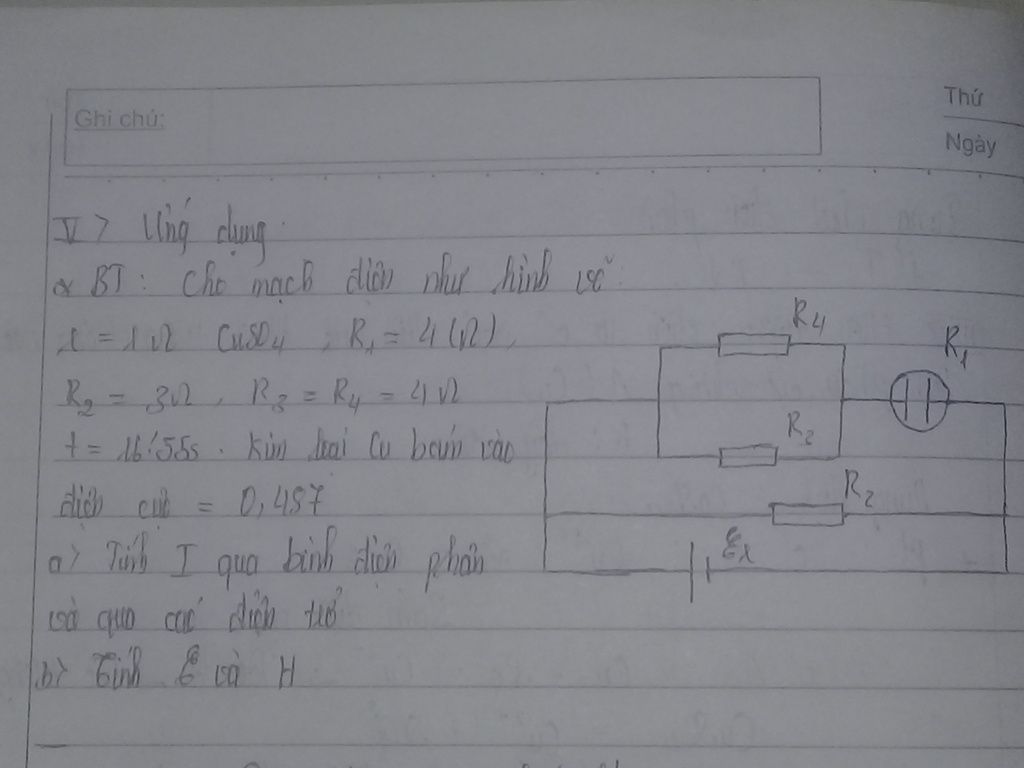 Ghi chú:
Thứ
Ngày
V> Ứng dụng
α BT: Cho mạch điện như hình vẽ
r = 1Ω CuSO4, R1 = 4(Ω),
R2 = 3Ω, R3 = R4 = 4Ω
t = 16'55s. Kim loại Cu bám vào
điện cực = 0,487
a> Tính I qua bình điện phân
và qua các điện trở
b> Tính ξ và H
R4
R1
R3
R2
ξ,r